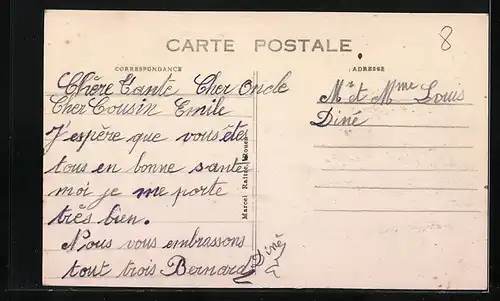 CARTE POSTALE
8
CORRESPONDANCE
ADRESSE
Chère Tante Cher Oncle
Cher Cousin Emile
J'espère que vous êtes
tous en bonne santé
moi je me porte
très bien.
Nous vous embrassons
tout trois Bernard
Diné
Marcel Rouen
Mr et Mme Louis
Diné